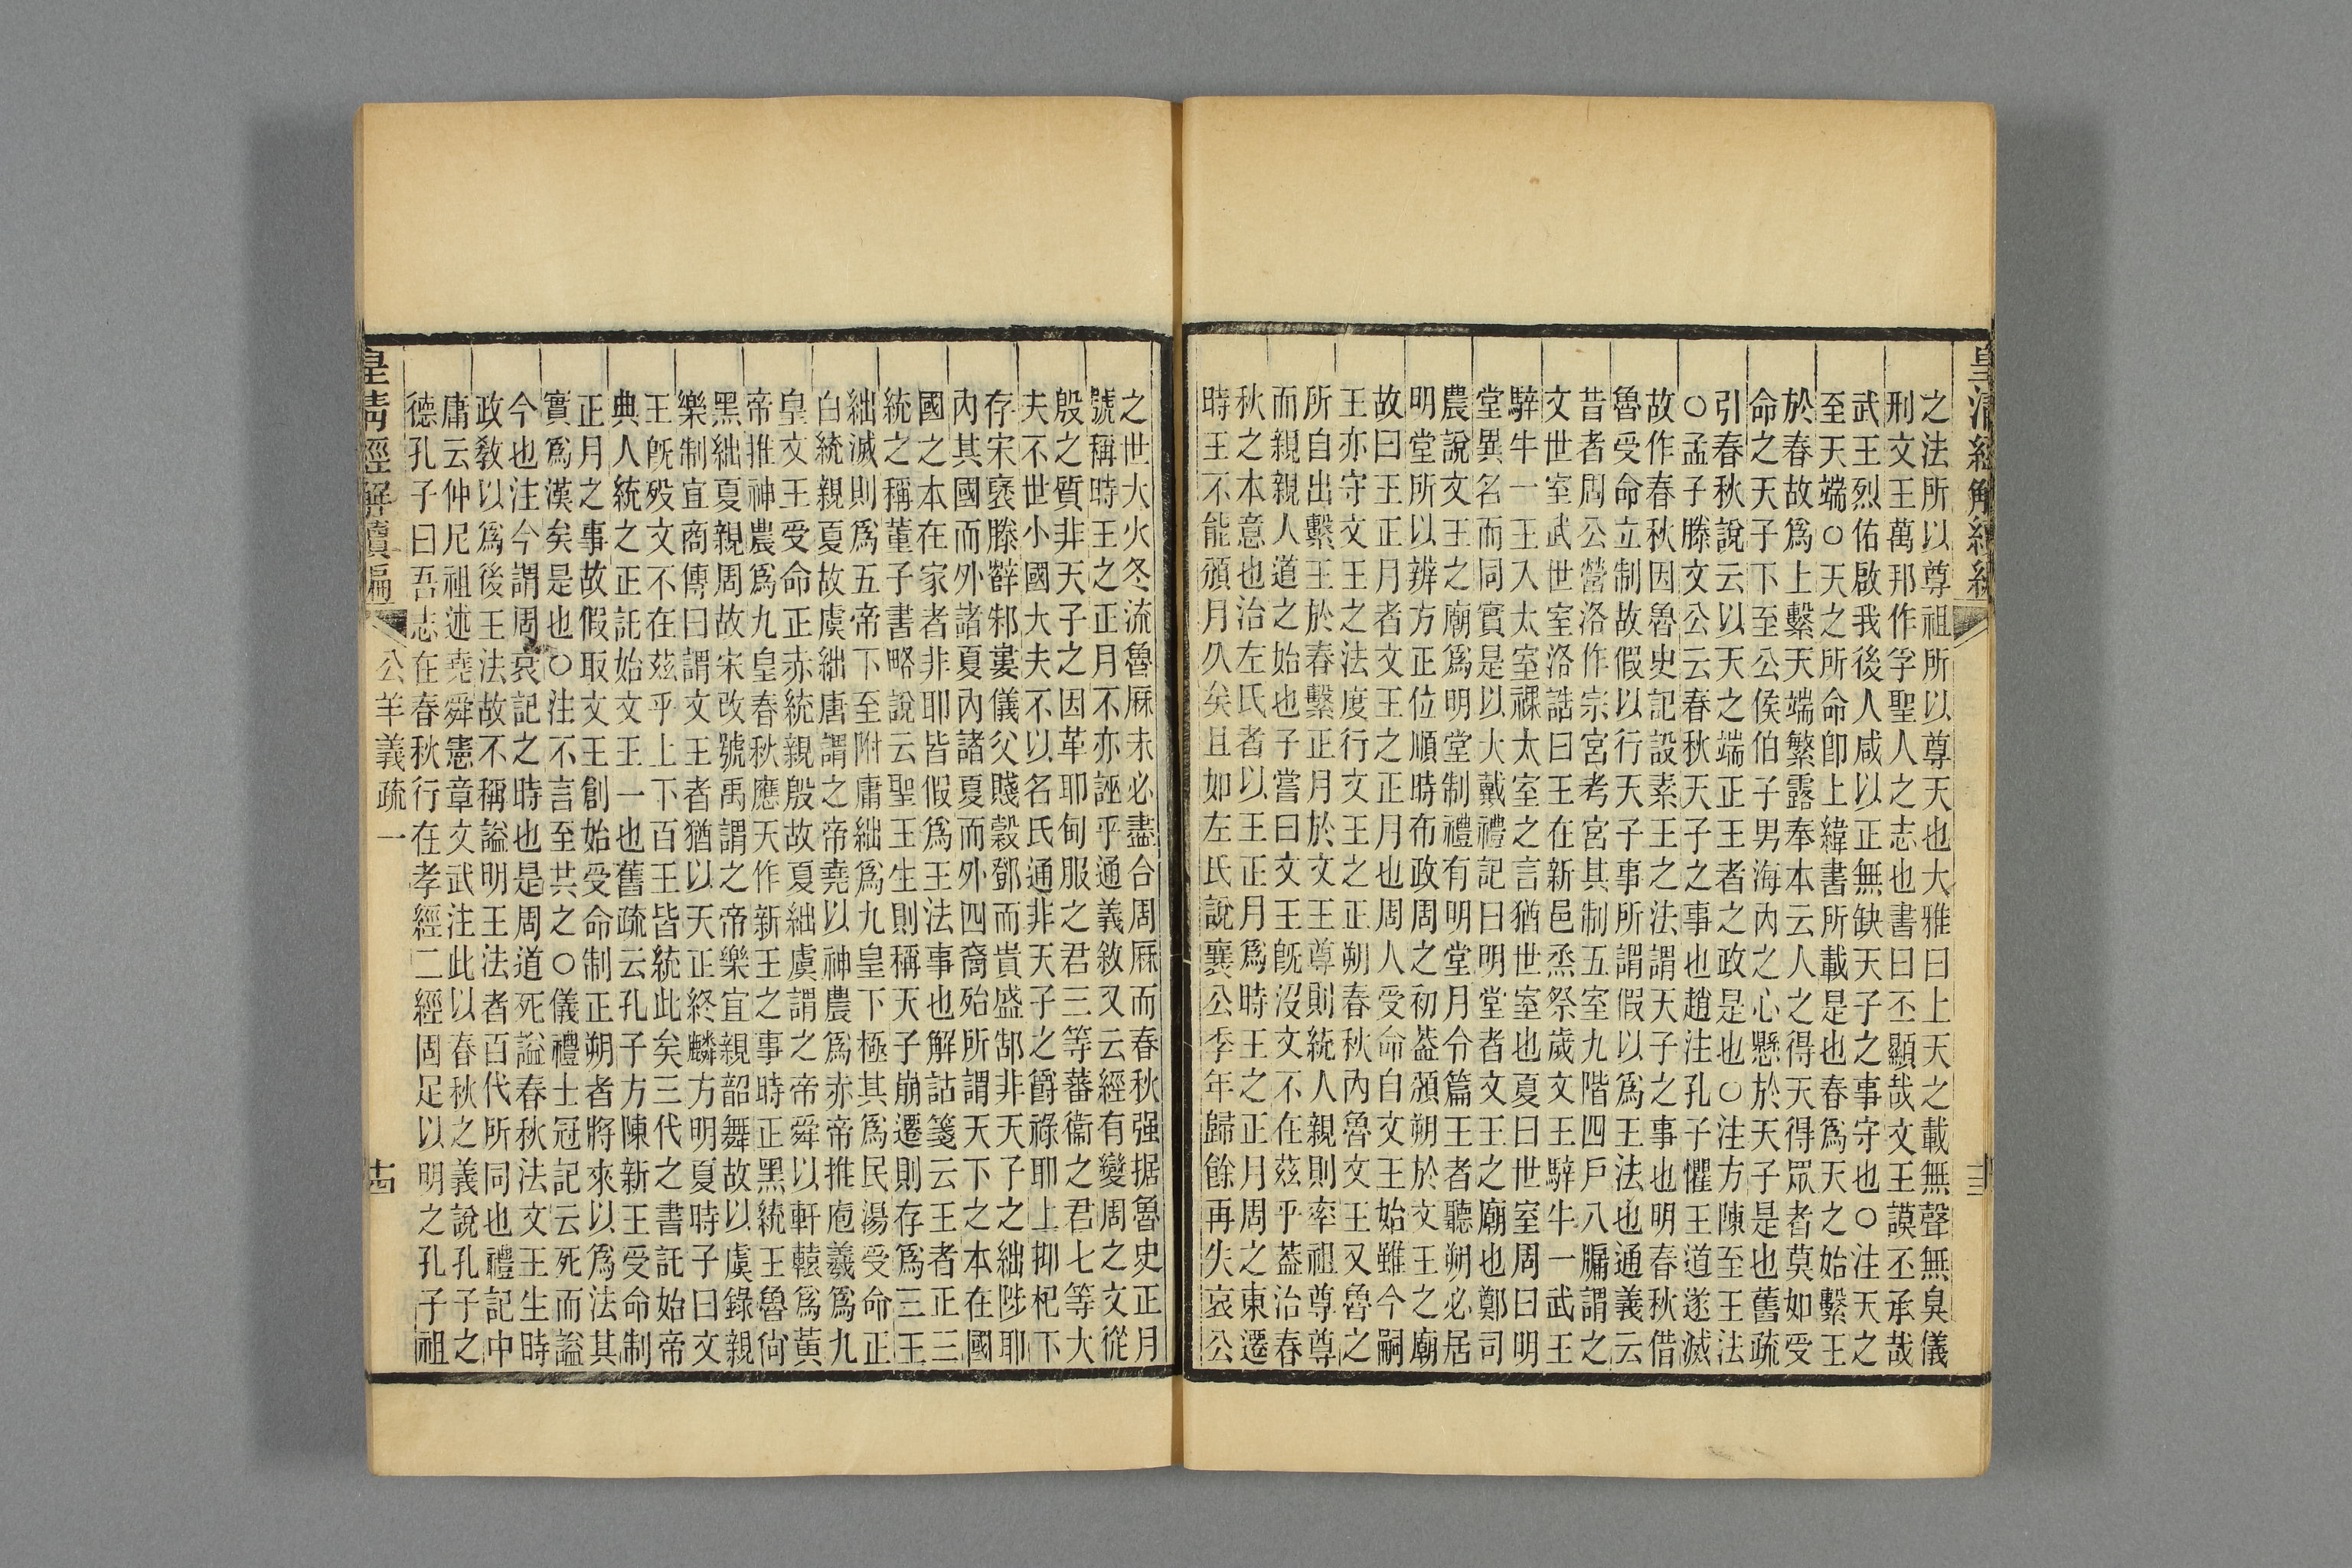 皇清經解續編
之法所以尊祖所以尊天也大雅曰上天之載無聲無臭儀
刑文王萬邦作孚聖人之志也書曰丕顯哉文王謨丕承哉
武王烈佑啟我後人咸以正無缺天子之事守也○注天之
至天端○天之所命卽上緯書所載是也春爲天之始繫王
於春故爲上繫天端繁露奉本云人之得天得眾者莫如受
命之天子下至公侯伯子男海內之心懸於天子是也舊疏
引春秋說云以天之端正王者之政是也○注方陳至王法
○孟子滕文公云春秋天子之事也趙注孔子懼王道遂滅
故作春秋因魯史記設素王之法謂天子之事也明春秋借
魯受命立制故假以行天子事所謂假以爲王法也通義云
昔者周公營洛作宗宮考宮其制五室九階四戶八牖謂之
文世室武世室洛誥曰王在新邑烝祭歲文王騂牛一武王
騂牛一王入太室祼太室之言猶世室也夏曰世室周曰明
堂異名而同實是以大戴禮記曰明堂者文王之廟也鄭司
農說文王之廟爲明堂制禮有明堂月令篇王者聽朔必居
明堂所以辨方正位順時布政周之初葢頒朔於文王之廟
故曰王正月者文王之正月也周人受命自文王始雖今嗣
王亦守文王之法度行文王之正朔春秋內魯文王又魯之
所自出繫王於春繫正月於文王尊則統人親則率祖尊尊
而親親人道之始也子嘗曰文王旣沒文不在茲乎葢治春
秋之本意也治左氏者以王正月爲時王之正月周之東遷
時王不能頒月久矣且如左氏說襄公季年歸餘再失哀公
之世大火冬流魯厤未必盡合周厤而春秋强据魯史正月
號稱時王之正月不亦誣乎通義敘又云經有變周之文從
殷之質非天子之因革耶甸服之君三等蕃衞之君七等大
夫不世小國大夫不以名氏通非天子之爵祿耶上抑杞下
存宋襃滕薛邾婁儀父賤穀鄧而貴盛郜非天子之絀陟耶
內其國而外諸夏內諸夏而外四裔殆所謂天下之本在國
國之本在家者非耶皆假爲王法事也解詁箋云王者正三
統之稱董子書略說云聖王生則稱天子崩遷則存爲三王
絀滅則爲五帝下至附庸絀爲九皇下極其爲民湯受命正
白統親夏故虞絀唐謂之帝堯以神農爲赤帝推庖羲爲九
皇文王受命正赤統親殷故夏絀虞謂之帝舜以軒轅爲黃
帝推神農爲九皇春秋應天作新王之事時正黑統王魯尙
黑絀夏親周故宋改號禹謂之帝樂宜親韶舞故以虞錄親
樂制宜商傳曰謂文王者猶以天正終麟方明夏時子曰文
王旣歿文不在茲乎上下百王皆統此矣三代之書託始帝
典人統之正託始文王一也舊疏云孔子方陳新王受命制
正月之事故假取文王創始受命制正朔者將來以爲法其
實爲漢矣是也○注不言至共之○儀禮士冠記云死而謚
今也注今謂周衰記之時也是周道死謚春秋法文王生時
政教以爲後王法故不稱謚明王法者百代所同也禮記中
庸云仲尼祖述堯舜憲章文武注此以春秋之義說孔子之
德孔子曰吾志在春秋行在孝經二經固足以明之孔子祖
皇清經解續編 公羊義疏一 十四